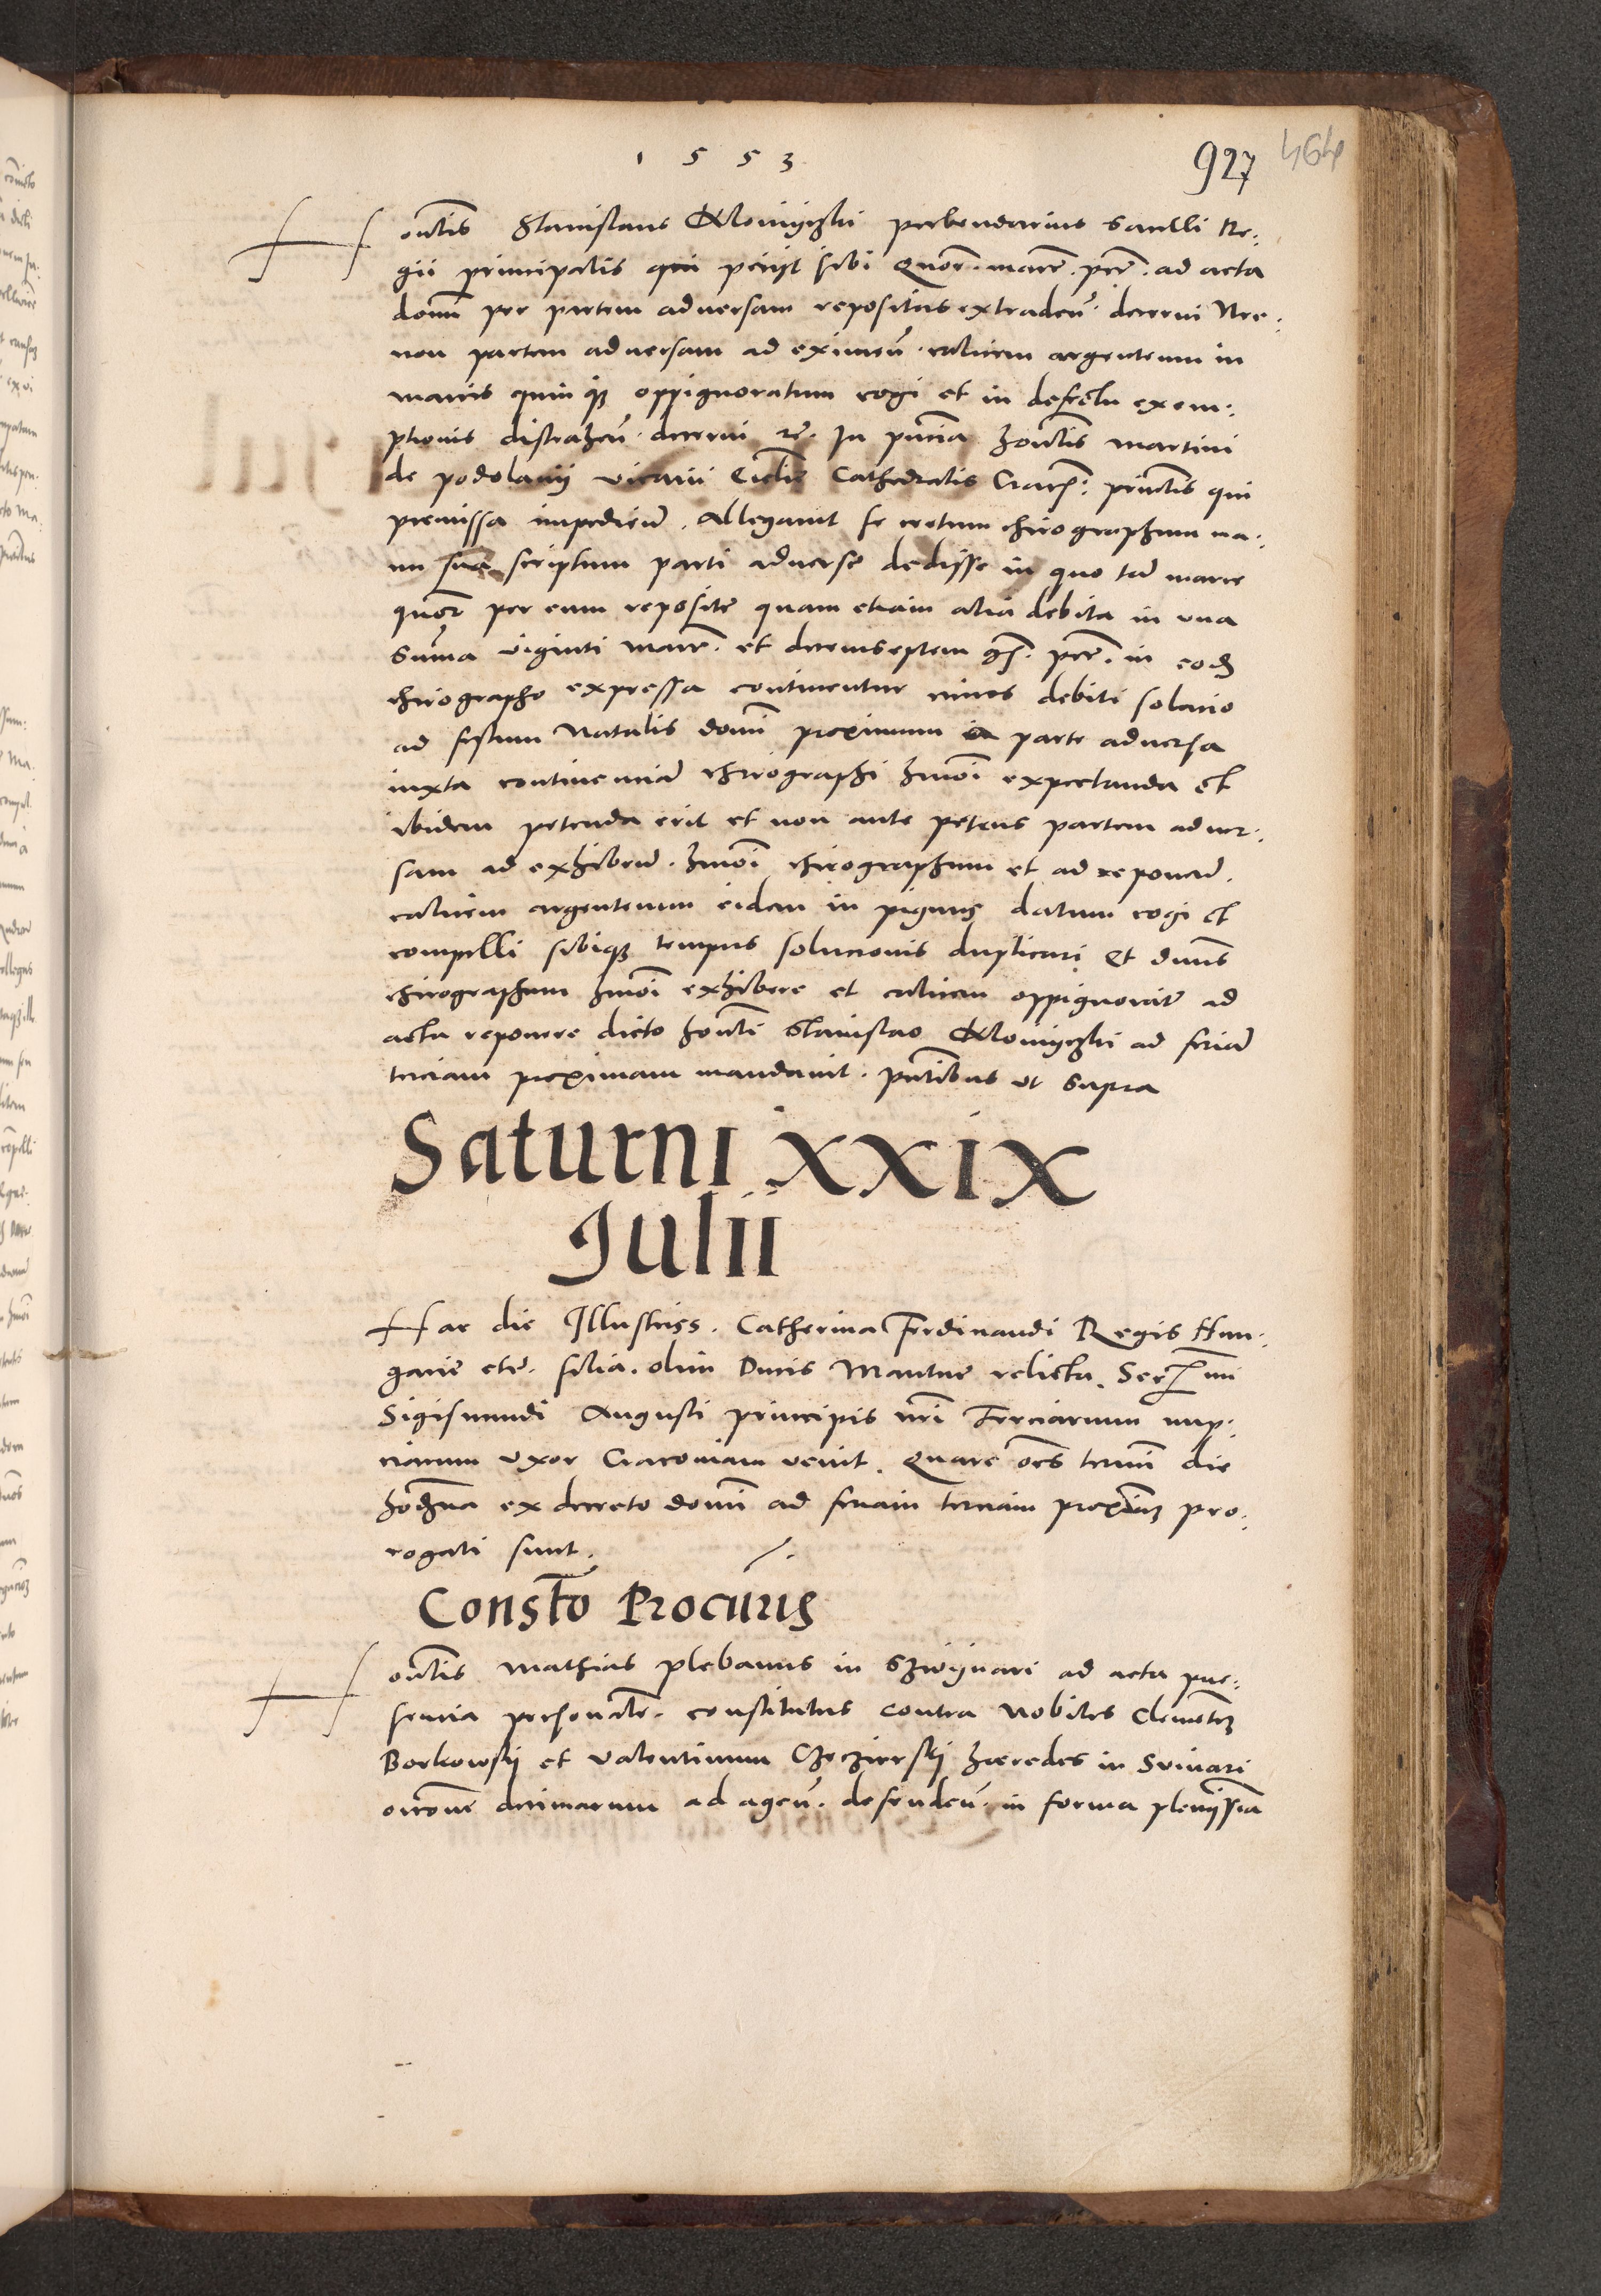 1553
927 464
Hontis Stanislaus Kloniyczki prebendarius Sacelli Re:
gii principalis qui petiit sibi quor. marc. pec. ad acta
domi per partem adversam repositas extraden. decerni Nec:
non partem adversam ad eximen. calicem argenteum in
marcis quinque oppignoratum cogi et in defectu exem:
ptionis distrahen. decerni etc. In pntia hontis Martini
de podolany vicarii Ecclie Cathedralis Crac. pntis qui
premissa impedien. Allegavit se certum chirographum ma:
nu sua scriptum parti adverse dedisse in quo tam marce
quor per eum reposite quam etiam alia debita in una
summa viginti marc. et decemseptem gs. pec. in eod
chirographo expressa continentur cuius debiti solucio
ad festum Natalis domi proximum a parte adversa
iuxta continenciam chirographi hmoi expectanda et
ibidem petenda erit et non ante petens partem adver:
sam ad exhiben. hmoi chirographum et ad reponend.
calicem argenteum eidem in pignus datum cogi et
compelli sibique tempus solucionis duplicari Et dnus
chirographum hmoi exhibere et calicem oppignorat ad
acta reponere dicto honti Stanislao Kloniyczki ad feriam
terciam proximam mandavit. pntibus ut supra
Saturni XXIX
Julii
Hac die Illustriss. Catherina Ferdinandi Regis Hun:
garie etc. filia. olim Ducis Mantue relicta. Sermi
Sigismundi Augusti principis nri Terciarum nup:
ciarum uxor Cracoviam venit. Quare oes termi die
hodierna ex decreto domi ad feriam terciam proximam pro:
rogati sunt.
Consto Procuris
Hontis Mathias plebanus in Szwynari ad acta pre:
sencia personale. constitutus contra Nobiles Clementem
Borkowsky et Valentinum Czeczierskij haeredes in Svinari
occone decimarum ad agen. defenden. in forma plenissia